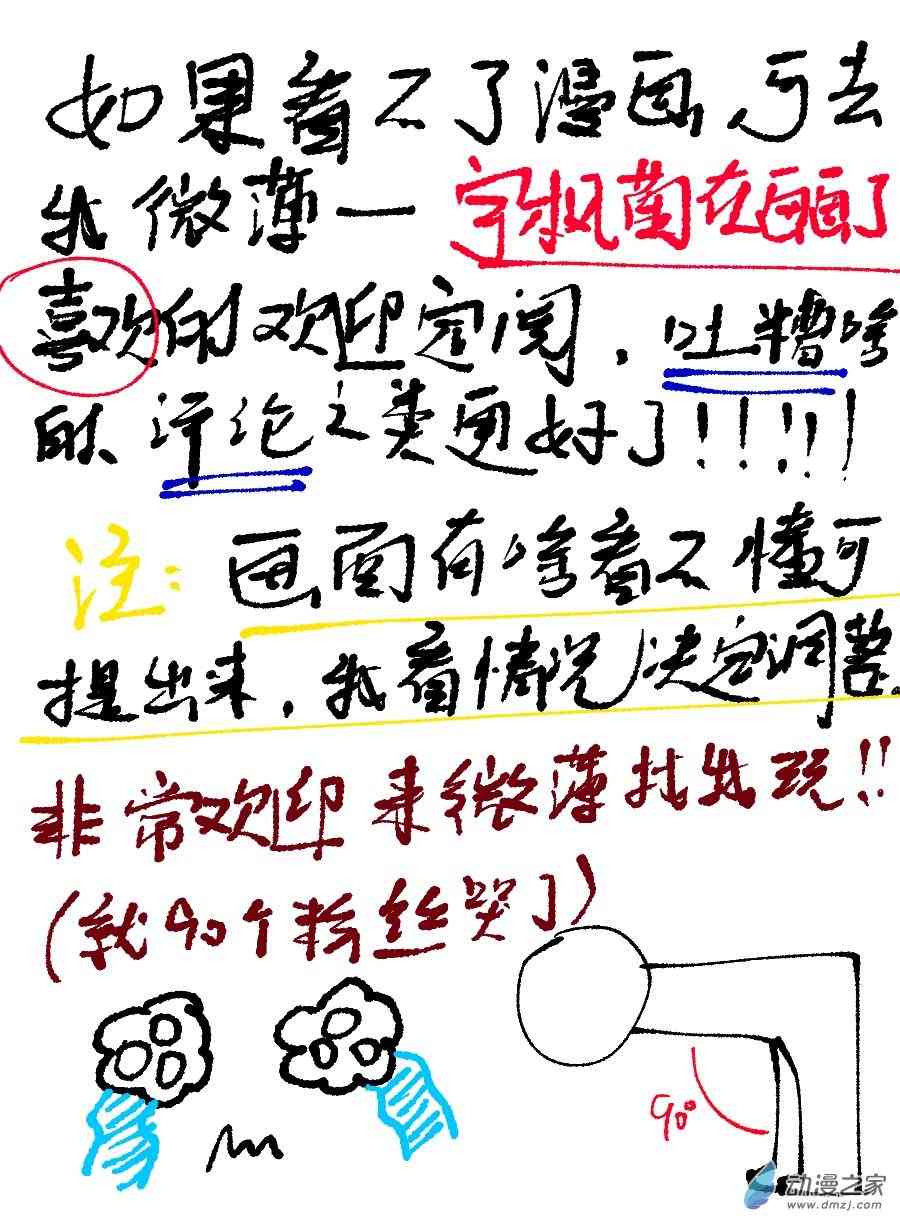 如果看不了漫画,可去
我微薄一宇枫茵在画画了
喜欢的欢迎定阅,吐糟啥
的、评论之类更好了!!!!!
注:画面有啥看不懂可
提出来,我看情况决定调整。
非常欢迎来微薄找我玩!!
(就90个粉丝哭了)
90°
动漫之家
www.dmzj.com